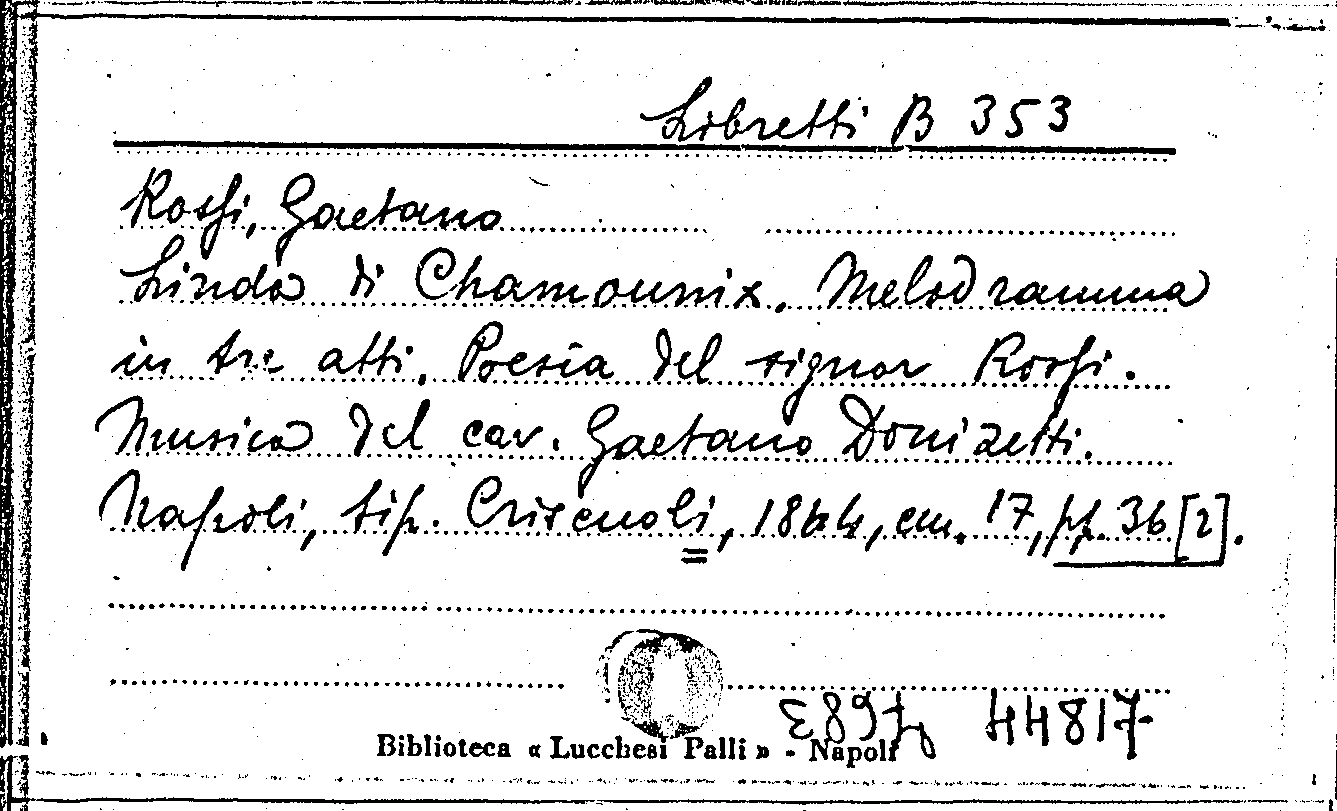 Libretti B 353
Rossi, Gaetano
Linda di Chamounix. Melodramma
in tre atti. Poesia del signor Rossi.
Musica del cav. Gaetano Donizetti.
Napoli, tip. Criscuoli, 1844, cm. 17, pp. 36 [2].
44817
Biblioteca « Lucchesi Palli » - Napoli